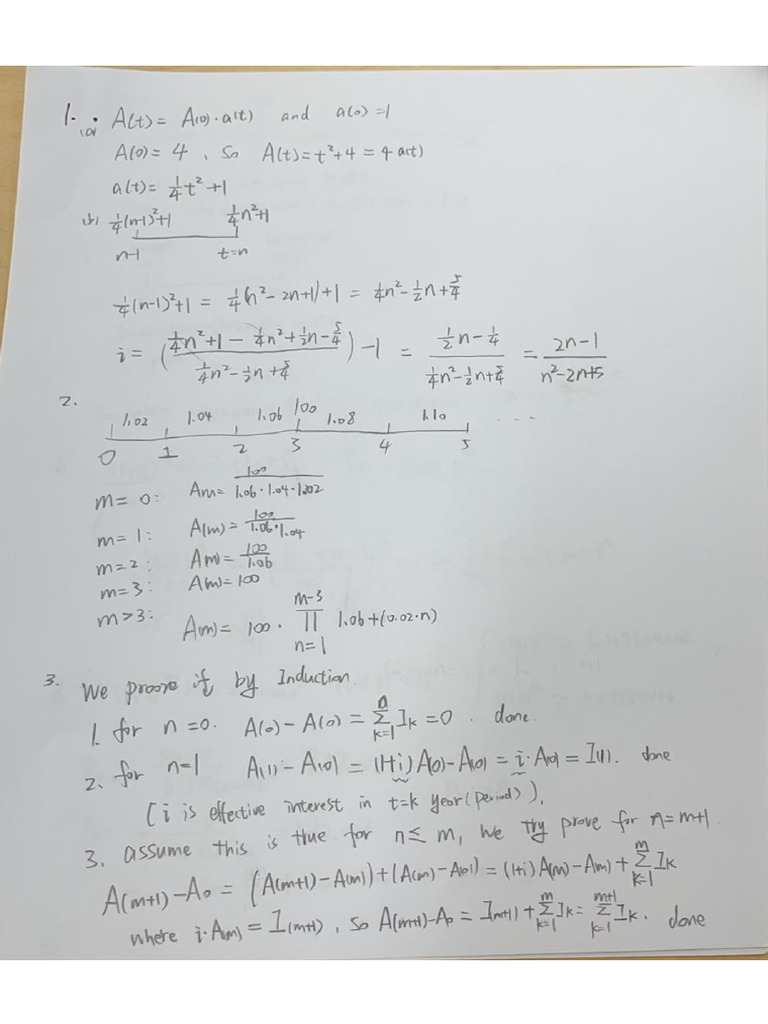 1. (a) A(t) = A(0)·a(t) and a(0) = 1
A(0) = 4, so A(t) = t²+4 = 4 a(t)
a(t) = 1/4 t² + 1
(b) 1/4(n-1)²+1 1/4 n²+1
n-1 t=n
1/4(n-1)²+1 = 1/4(n²-2n+1)+1 = 1/4 n² - 1/2 n + 5/4
i = ( (1/4 n² + 1 - 1/4 n² + 1/2 n - 5/4) / (1/4 n² - 1/2 n + 5/4) ) - 1 = (1/2 n - 1/4) / (1/4 n² - 1/2 n + 5/4) = (2n-1) / (n²-2n+5)
2.
1.02 1.04 1.06 100 1.08 1.10 ...
0 1 2 3 4 5
m = 0: A(m) = 100 / (1.06·1.04·1.02)
m = 1: A(m) = 100 / (1.06·1.04)
m = 2: A(m) = 100 / 1.06
m = 3: A(m) = 100
m > 3: A(m) = 100 · ∏_{n=1}^{m-3} 1.06+(0.02·n)
3. We proove if by Induction.
1. for n = 0. A(0) - A(0) = Σ_{k=1}^{n} I_k = 0. done
2. for n=1 A(1) - A(0) = (1+i) A(0) - A(0) = i·A(0) = I(1). done
(i is effective interest in t=k year (period)).
3. assume this is true for n ≤ m, we try prove for n=m+1
A(m+1) - A0 = (A(m+1) - A(m)) + (A(m) - A(0)) = (1+i) A(m) - A(m) + Σ_{k=1}^{m} I_k
where i·A(m) = I(m+1), so A(m+1) - A0 = I(m+1) + Σ_{k=1}^{m} I_k = Σ_{k=1}^{m+1} I_k. done